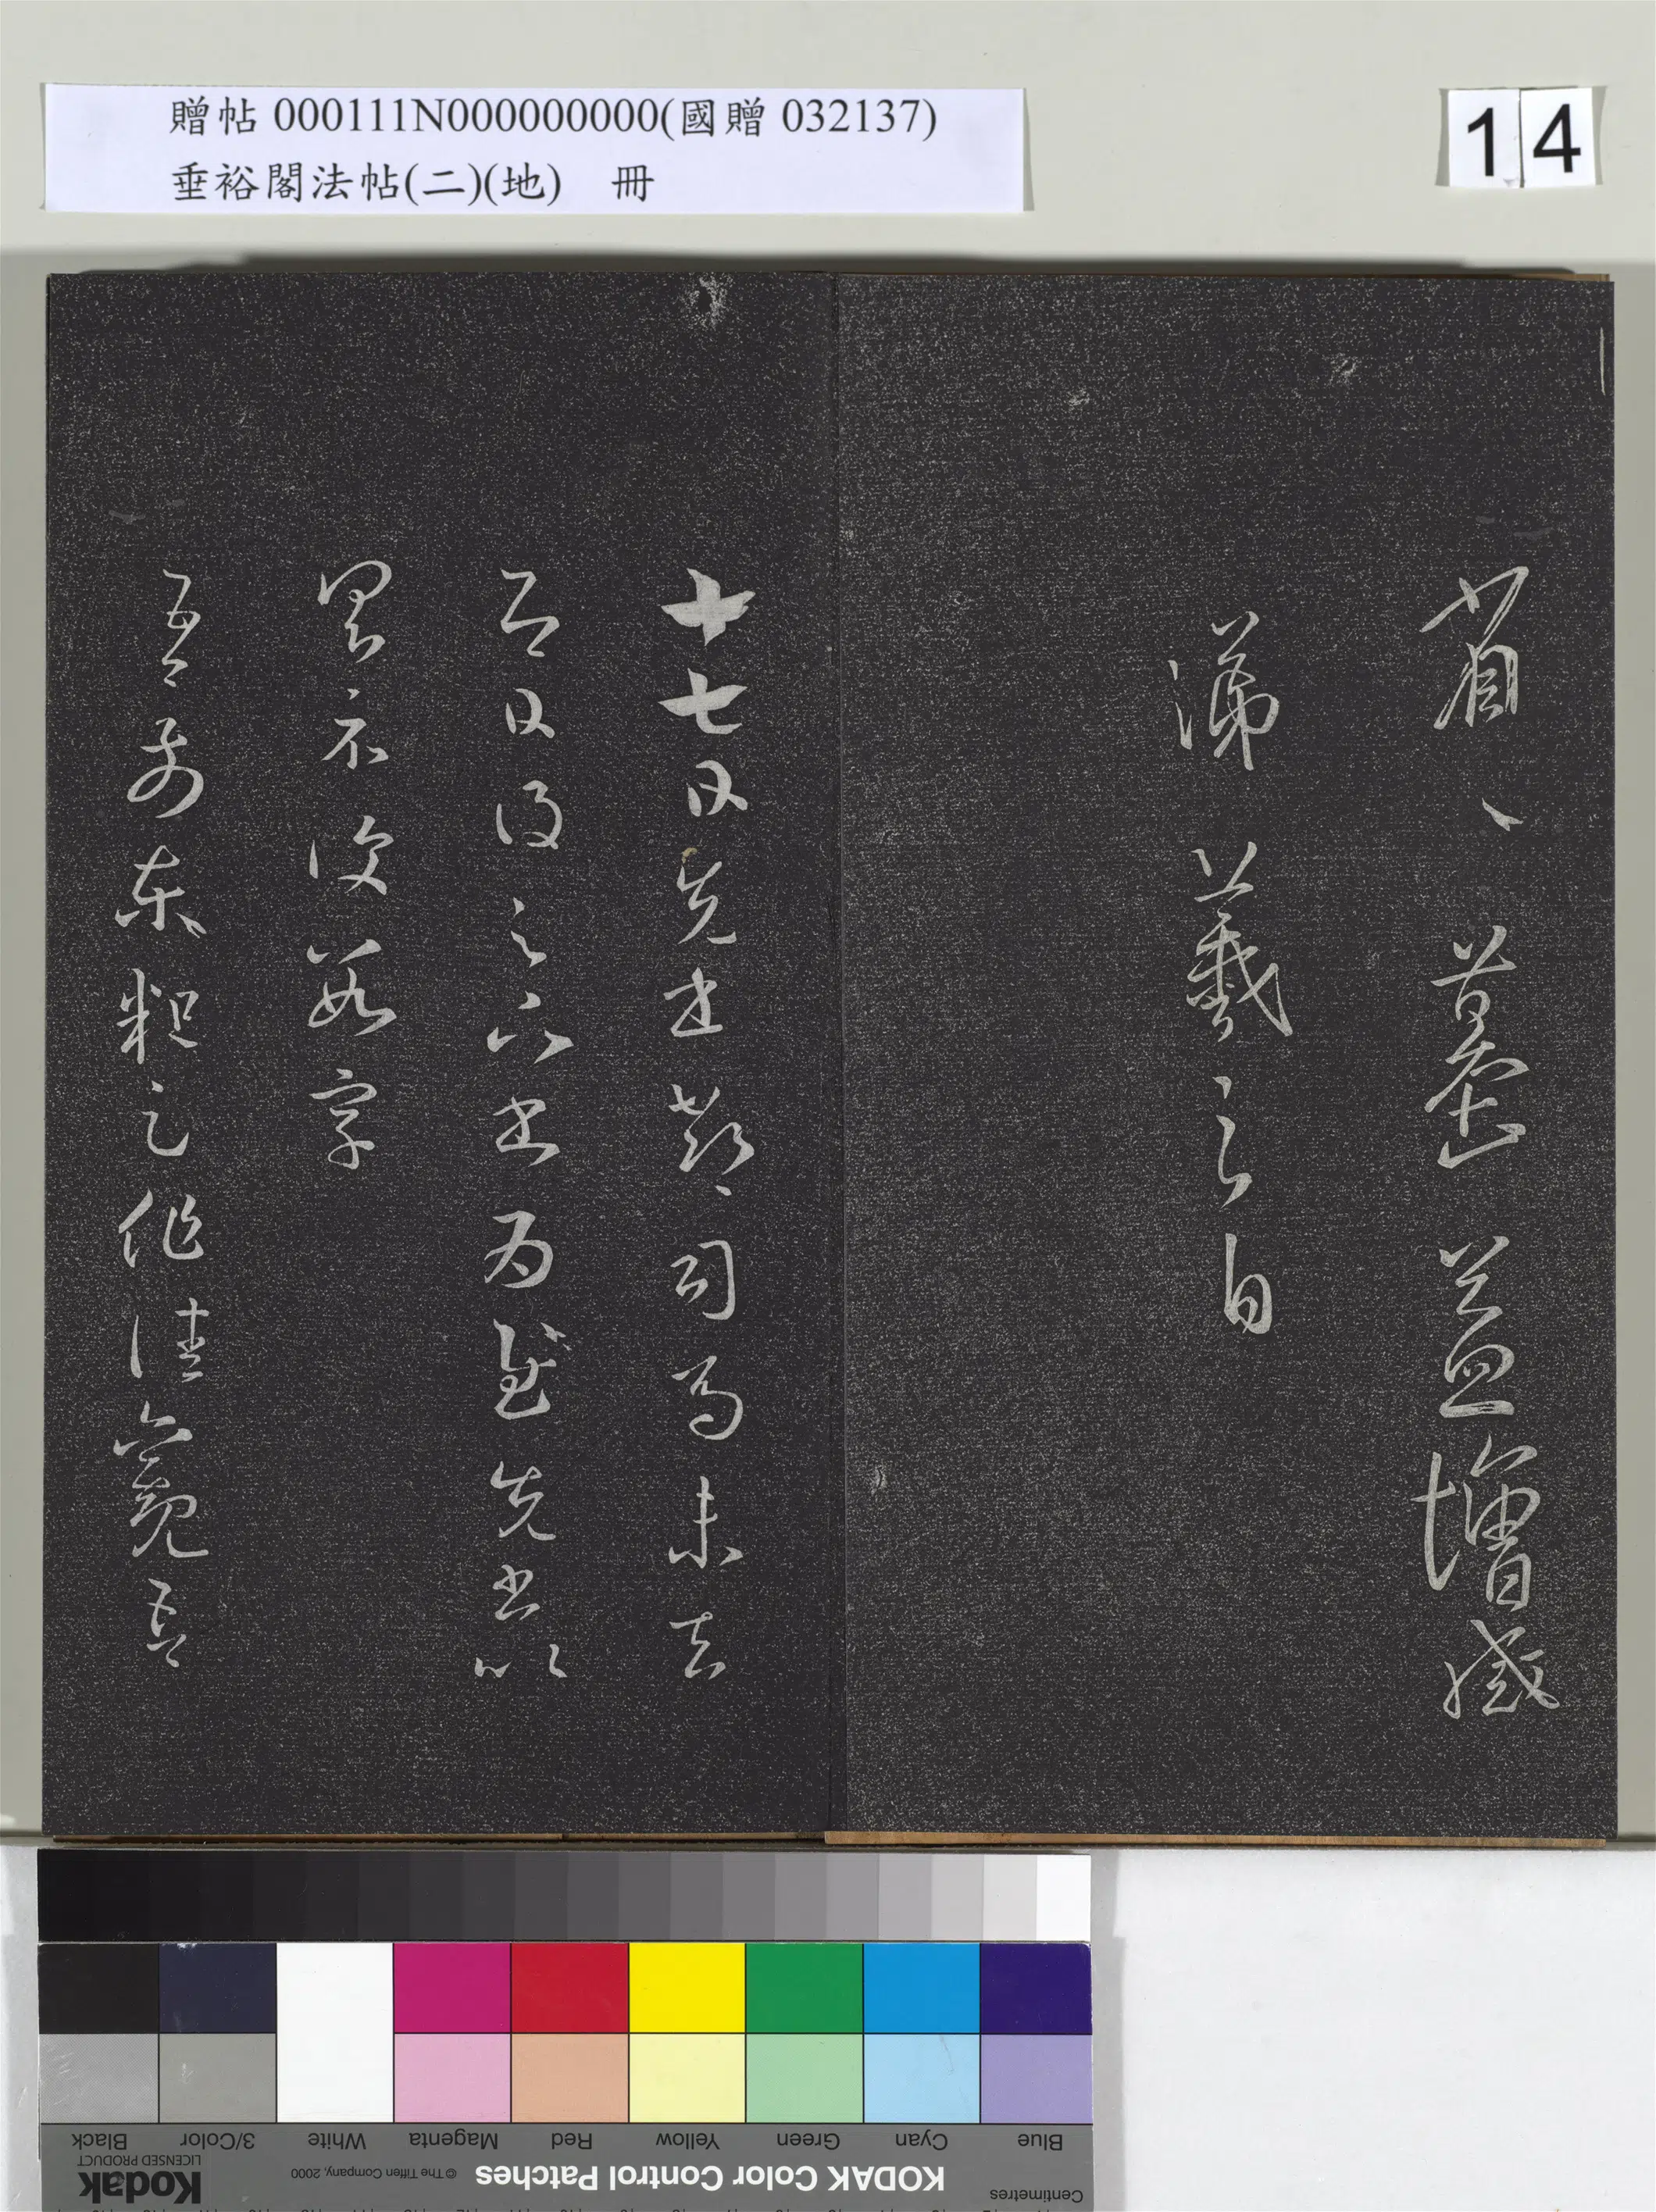 贈帖 000111N000000000(國贈 032137)
垂裕閣法帖(二)(地) 冊
14
益增感
涕 羲之白
十七日先書郗司馬未去
即日得足下書為慰先書以
具示復數字
吾前東粗足作佳觀吾
Centimetres
KODAK Color Control Patches
© The Tiffen Company, 2000
Kodak
LICENSED PRODUCT
Blue Cyan Green Yellow Red Magenta White 3/Color Black